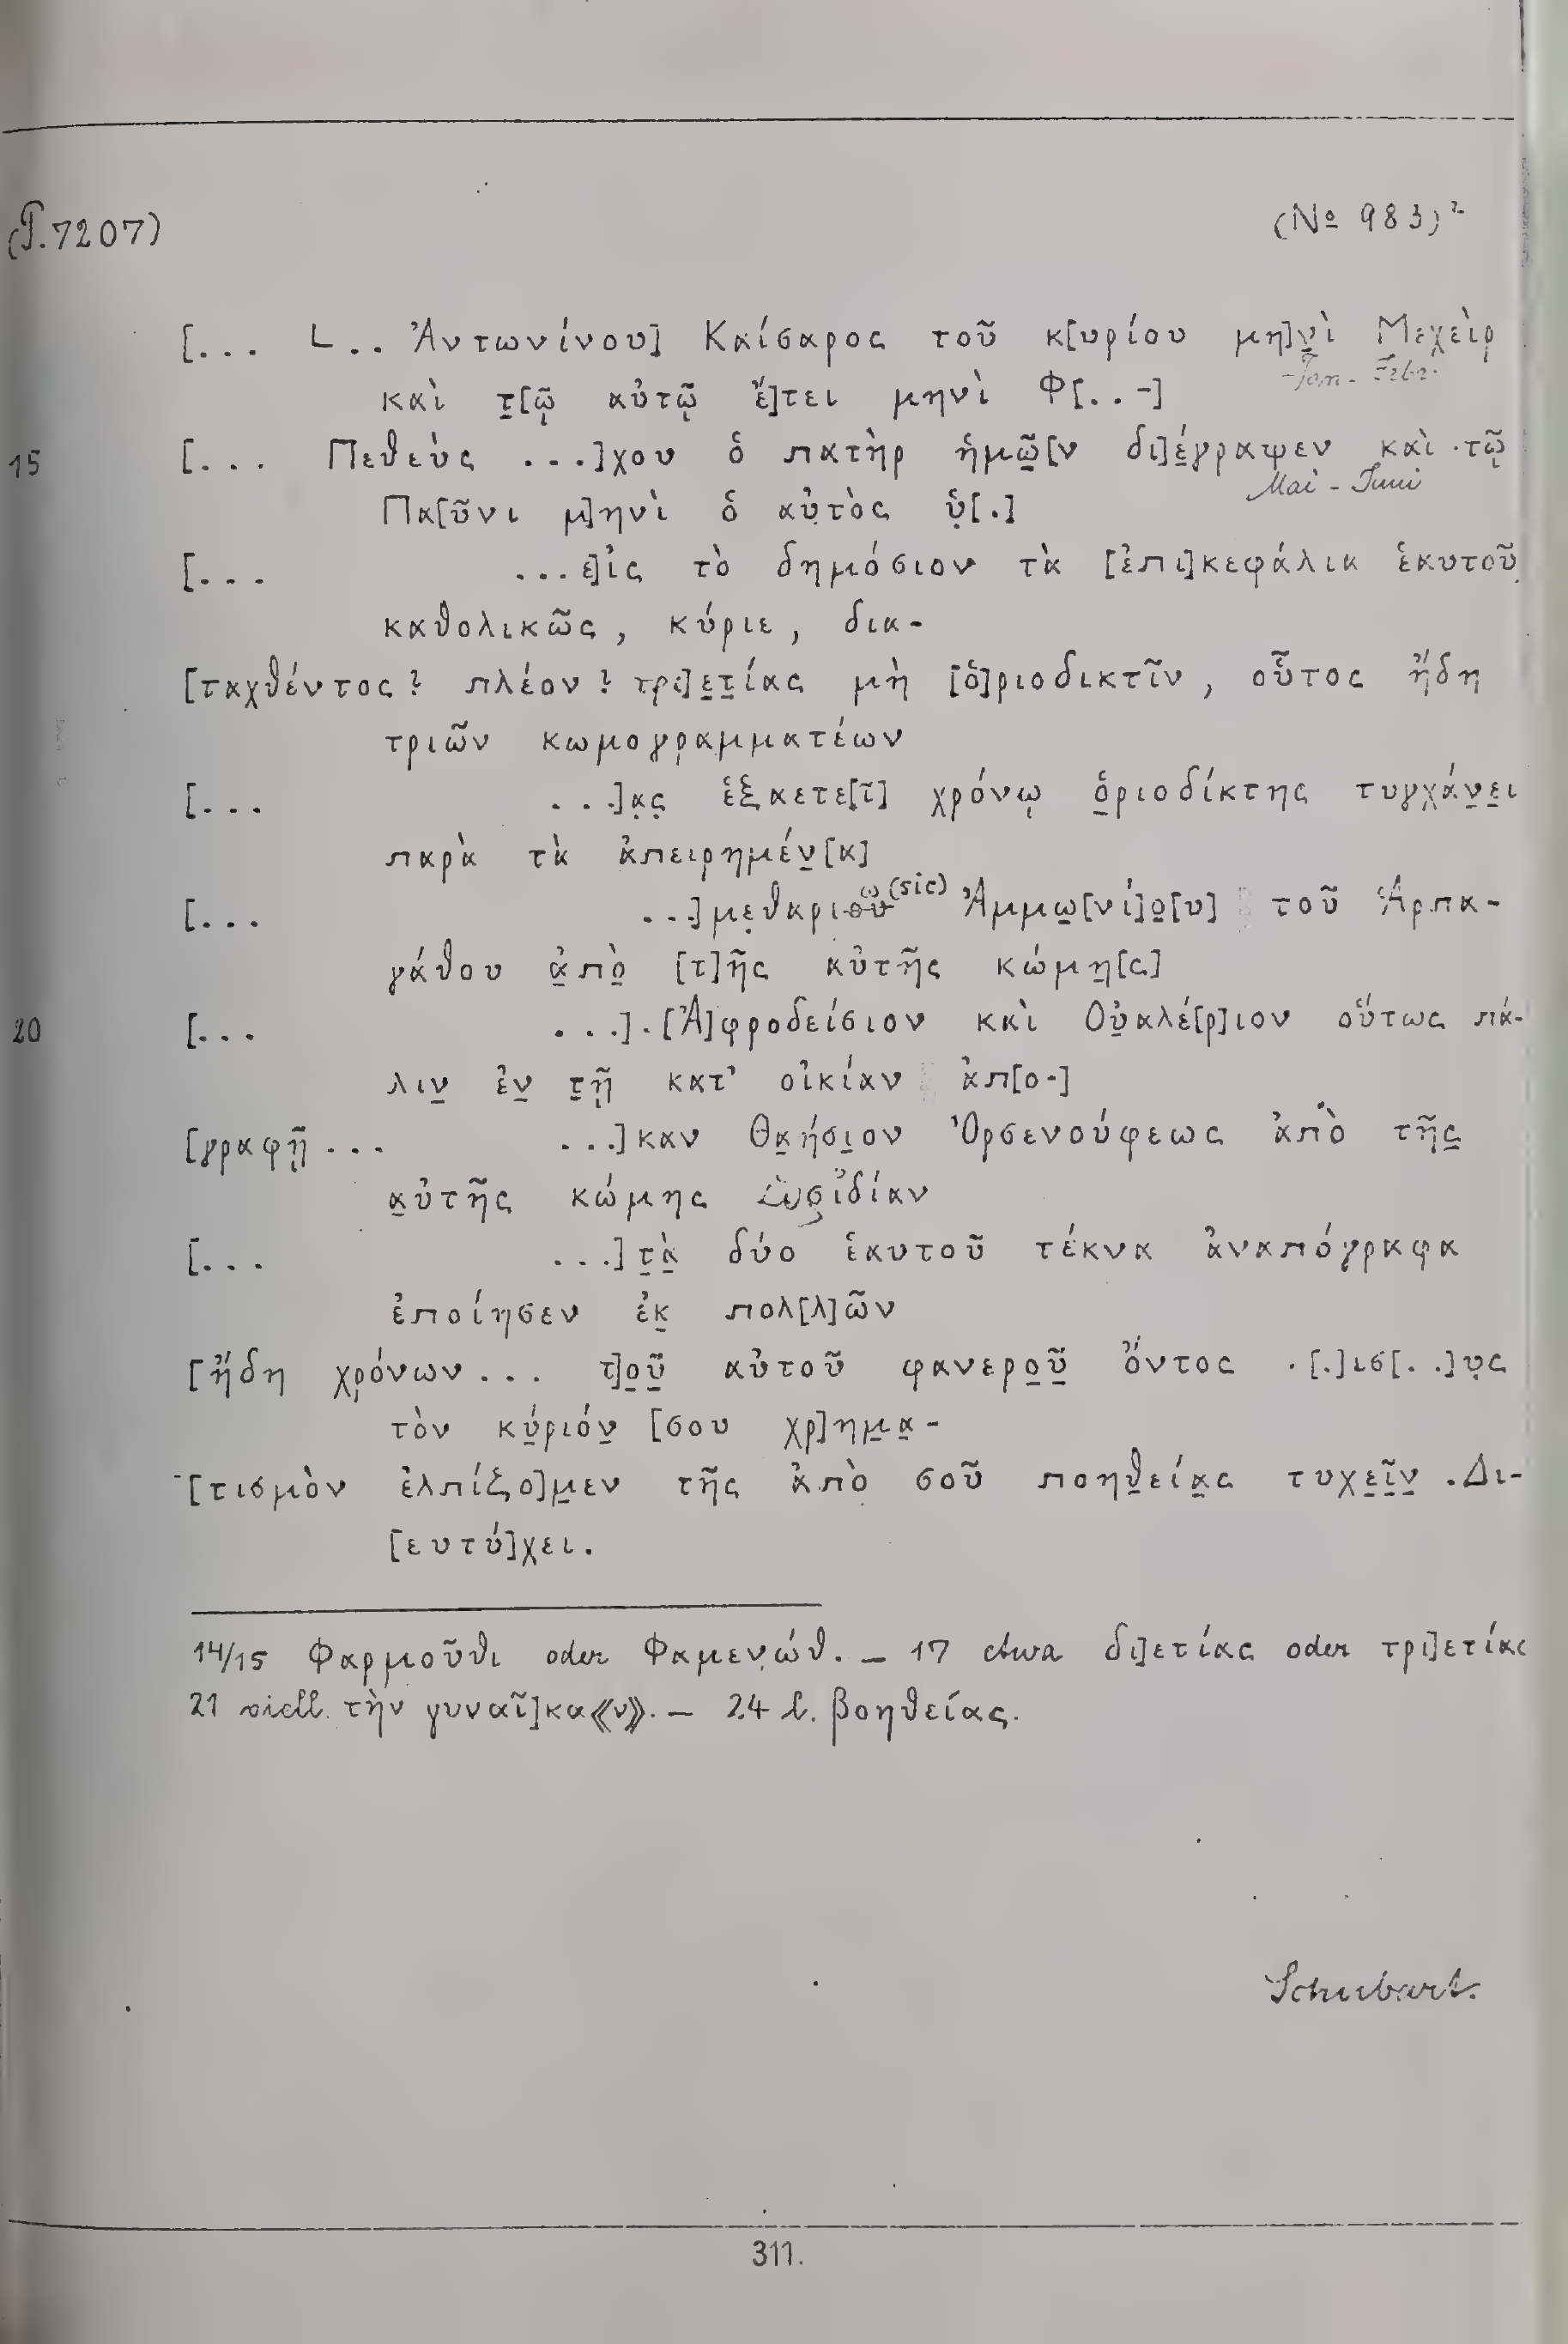 (P.7207) (№ 983)²
[... L .. Ἀντωνίνου] Καίσαρος τοῦ κ[υρίου μη]ν̣ὶ Μεχεὶρ
Jan. - Febr.
καὶ τ̣[ῷ αὐτῷ ἔ]τει μηνὶ Φ[. . -]
15 [... Πεθεὺς ...]χου ὁ πατὴρ ἡμῶ̣[ν δι]έ̣γραψεν καὶ τῷ
Mai - Juni
Πα[ῦνι μ]ηνὶ ὁ αὐ̣τὸς ὑ̣[.]
[... ...ε]ἰς τὸ δημόσιον τὰ [ἐπι]κεφάλια ἑαυτοῦ
καθολικῶς, κύριε, δια-
[ταχθέντος? πλέον? τρι]ε̣τ̣ίας μὴ [ὁ]ριοδικτῖν, οὗτος ἤδη
τριῶν κωμογραμματέων
[... ...]α̣ς̣ ἑξαετε[ῖ] χρόνῳ ὁ̣ριοδίκτης τυγχάν̣ε̣ι
παρὰ τὰ ἀπειρημέν̣[α]
[... ...]με̣θαριου ω (sic) Ἀμμω̣[νί]ο̣[υ] τοῦ Ἁρπα-
γάθου ἀ̣πὸ̣ [τ]ῆς αὐτῆς κώμη̣[ς]
20 [... ...].[Ἀ]φροδείσιον καὶ Οὐ̣αλέ[ρ]ιον οὕτως πά-
λιν̣ ἐν̣ τ̣ῇ κατ' οἰκίαν ἀπ[ο-]
[γραφῇ ... ...]καν Θα̣ήσι̣ον Ὀρσενούφεως ἀπὸ τῆς̣
α̣ὐτῆς κώμης
[... ...]τ̣ὰ̣ δύο ἑαυτοῦ τέκνα ἀναπόγραφα
ἐποίησεν ἐκ̣ πολ[λ]ῶν
[ἤδη χρόνων ... τ]ο̣ῦ̣ αὐτοῦ φανερο̣ῦ̣ ὄντος .[.]ισ[..]υ̣ς
τὸν κύ̣ριόν̣ [σου χρ]ημ̣α̣-
[τισμὸν ἐλπίζο]μ̣εν τῆς ἀπὸ σοῦ ποηθ̣εία̣ς τυχε̣ῖ̣ν̣. Δι-
[ευτύ]χει.
14/15 Φαρμοῦθι oder Φαμενώθ. – 17 etwa δι]ετίας oder τρι]ετίας
21 viell. τὴν γυναῖ]κα⟪ν⟫. – 24 l. βοηθείας.
Schubart.
311.